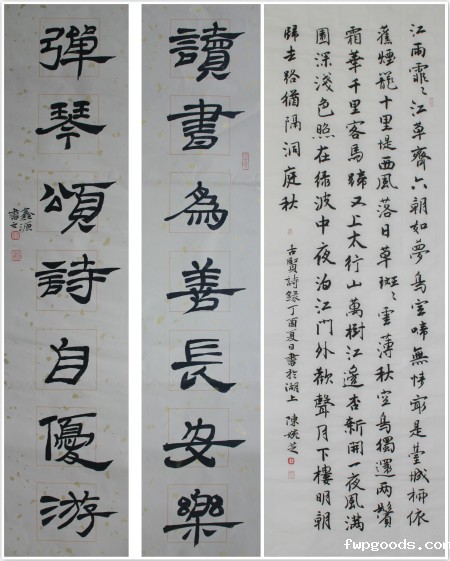 江雨霏〻江草齊六朝如夢鳥空啼無情㝡是臺城柳依
舊煙籠十里堤西風落日草斑〻雲薄秋空鳥獨還兩鬢
霜華千里客馬蹄又上太行山萬樹江邊杏新開一夜風滿
園深淺色照在綠波中夜泊江門外歡聲月下樓明朝
歸去路猶隔洞庭秋
古賢詩錄丁酉夏日書於湖上 陳媖芝
讀書為善長安樂
彈琴頌詩自優游
鑫源
書
fwpgoods.com